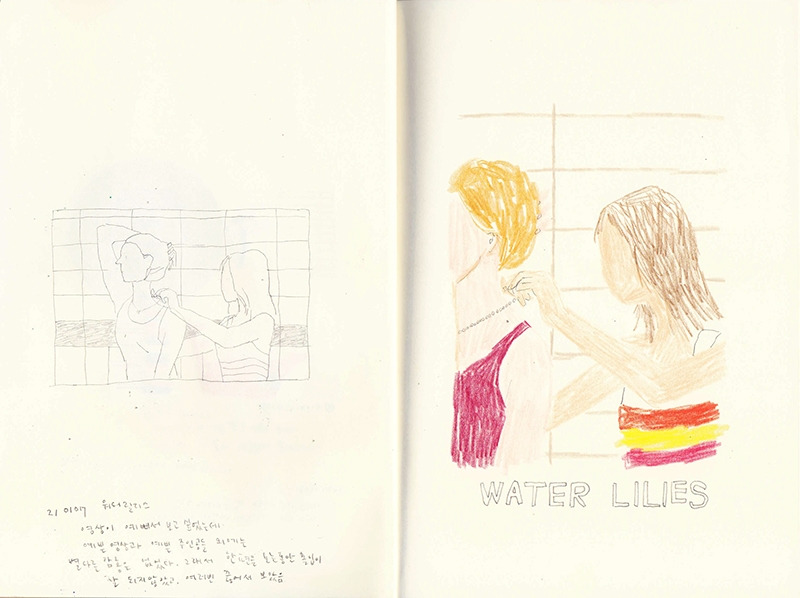 21 01 07 워터릴리스
영상이 예뻐서 보고 싶었는데
예쁜 영상과 예쁜 주인공들
별다른 감동은 없었다. 그래서 한편을 보는동안 몰입이
잘 되지않았고, 여러번 끊어서 보았음
WATER LILIES